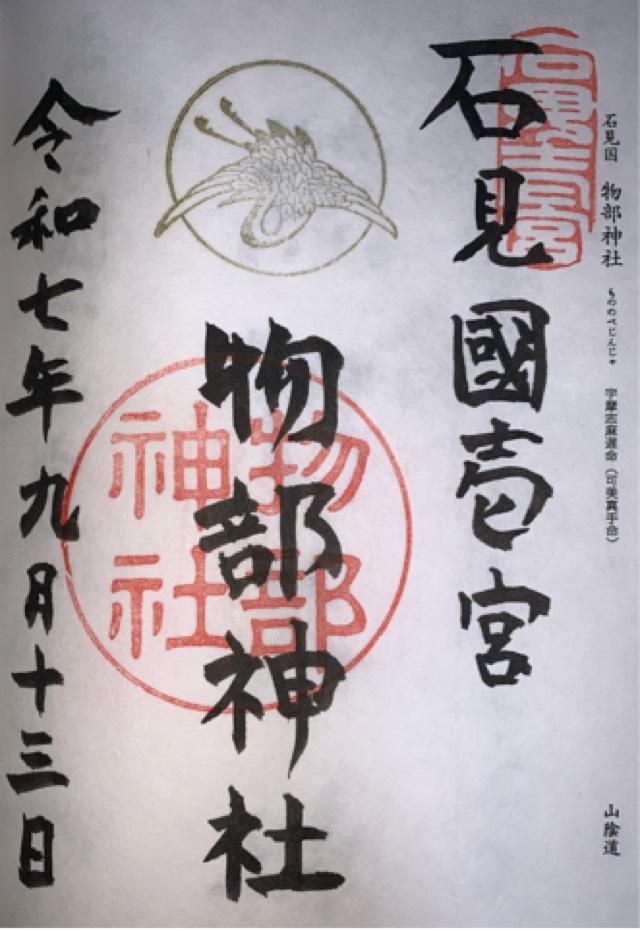 石見国 物部神社 もののべじんじゃ 宇摩志麻遅命(可美真手命)
山陰道
石見國壱宮
物部神社
物部
神社
令和七年九月十三日